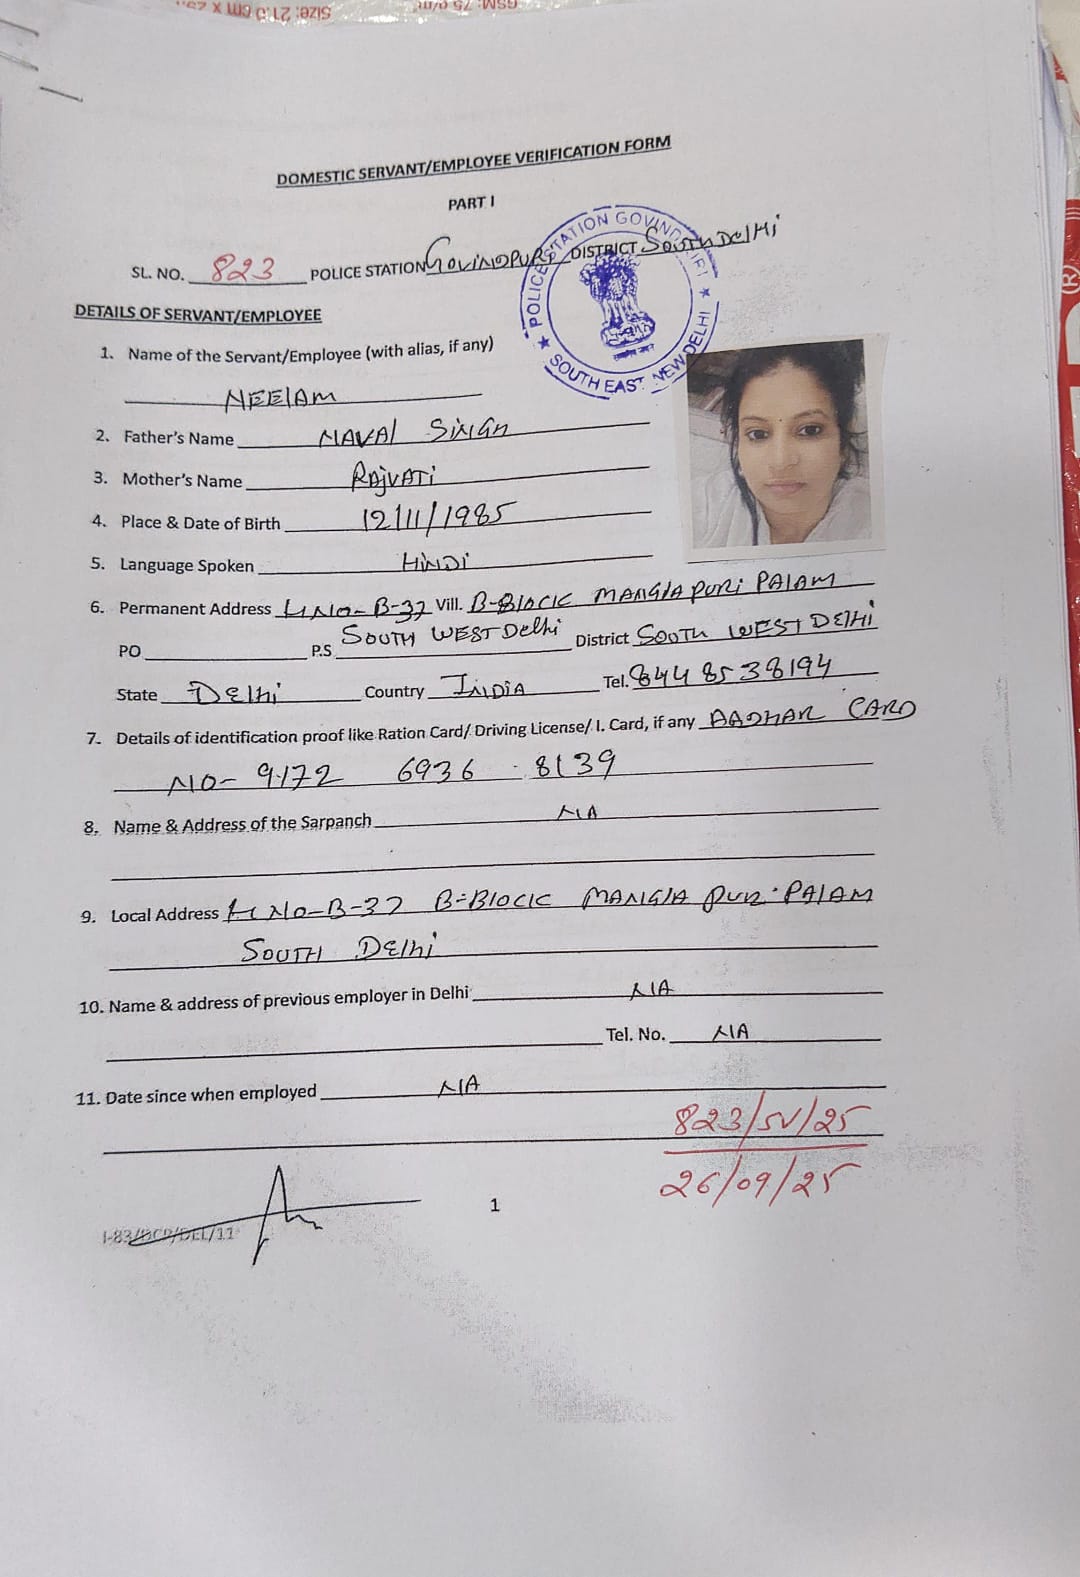 Size: 21.0 cm x 29.
GSM: 75 g/m
DOMESTIC SERVANT/EMPLOYEE VERIFICATION FORM
PART I
SL. NO. 823 POLICE STATION GOVINDPURI DISTRICT SOUTH DElHi
POLICE STATION GOVINDPURI
SOUTH EAST NEW DELHI
DETAILS OF SERVANT/EMPLOYEE
1. Name of the Servant/Employee (with alias, if any)
NEElAM
2. Father's Name NAVAl SiNGH
3. Mother's Name RAjVATi
4. Place & Date of Birth 12/11/1985
5. Language Spoken HiNDi
6. Permanent Address H NO- B-37 Vill. B-BlOCK MANGlA PURi PAlAM
PO P.S SOUTH WEST Delhi District SOUTH WEST DElHi
State DElhi Country INDiA Tel. 8448538194
7. Details of identification proof like Ration Card/ Driving License/ I. Card, if any AADHAR CARD
NO- 9172 6936 8139
8. Name & Address of the Sarpanch NA
9. Local Address H NO-B-37 B-BlOCK MANGlA PURi PAlAM
SOUTH DElhi
10. Name & address of previous employer in Delhi NA
Tel. No. NA
11. Date since when employed NA
823/SV/25
26/09/25
1
I-83/DCP/DEL/11